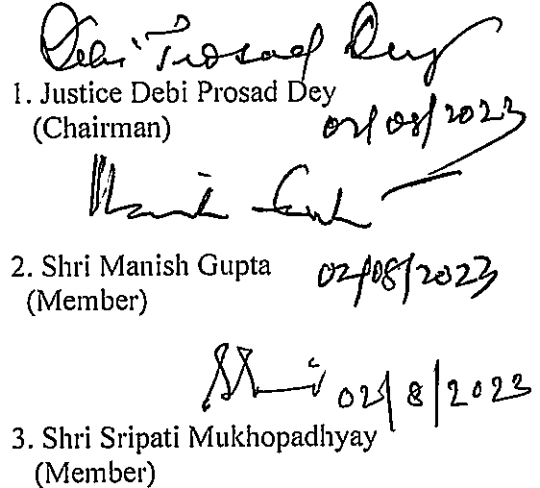 Debi Prosad Dey
1. Justice Debi Prosad Dey
(Chairman)
02/08/2023
2. Shri Manish Gupta 02/08/2023
(Member)
02/8/2023
3. Shri Sripati Mukhopadhyay
(Member)